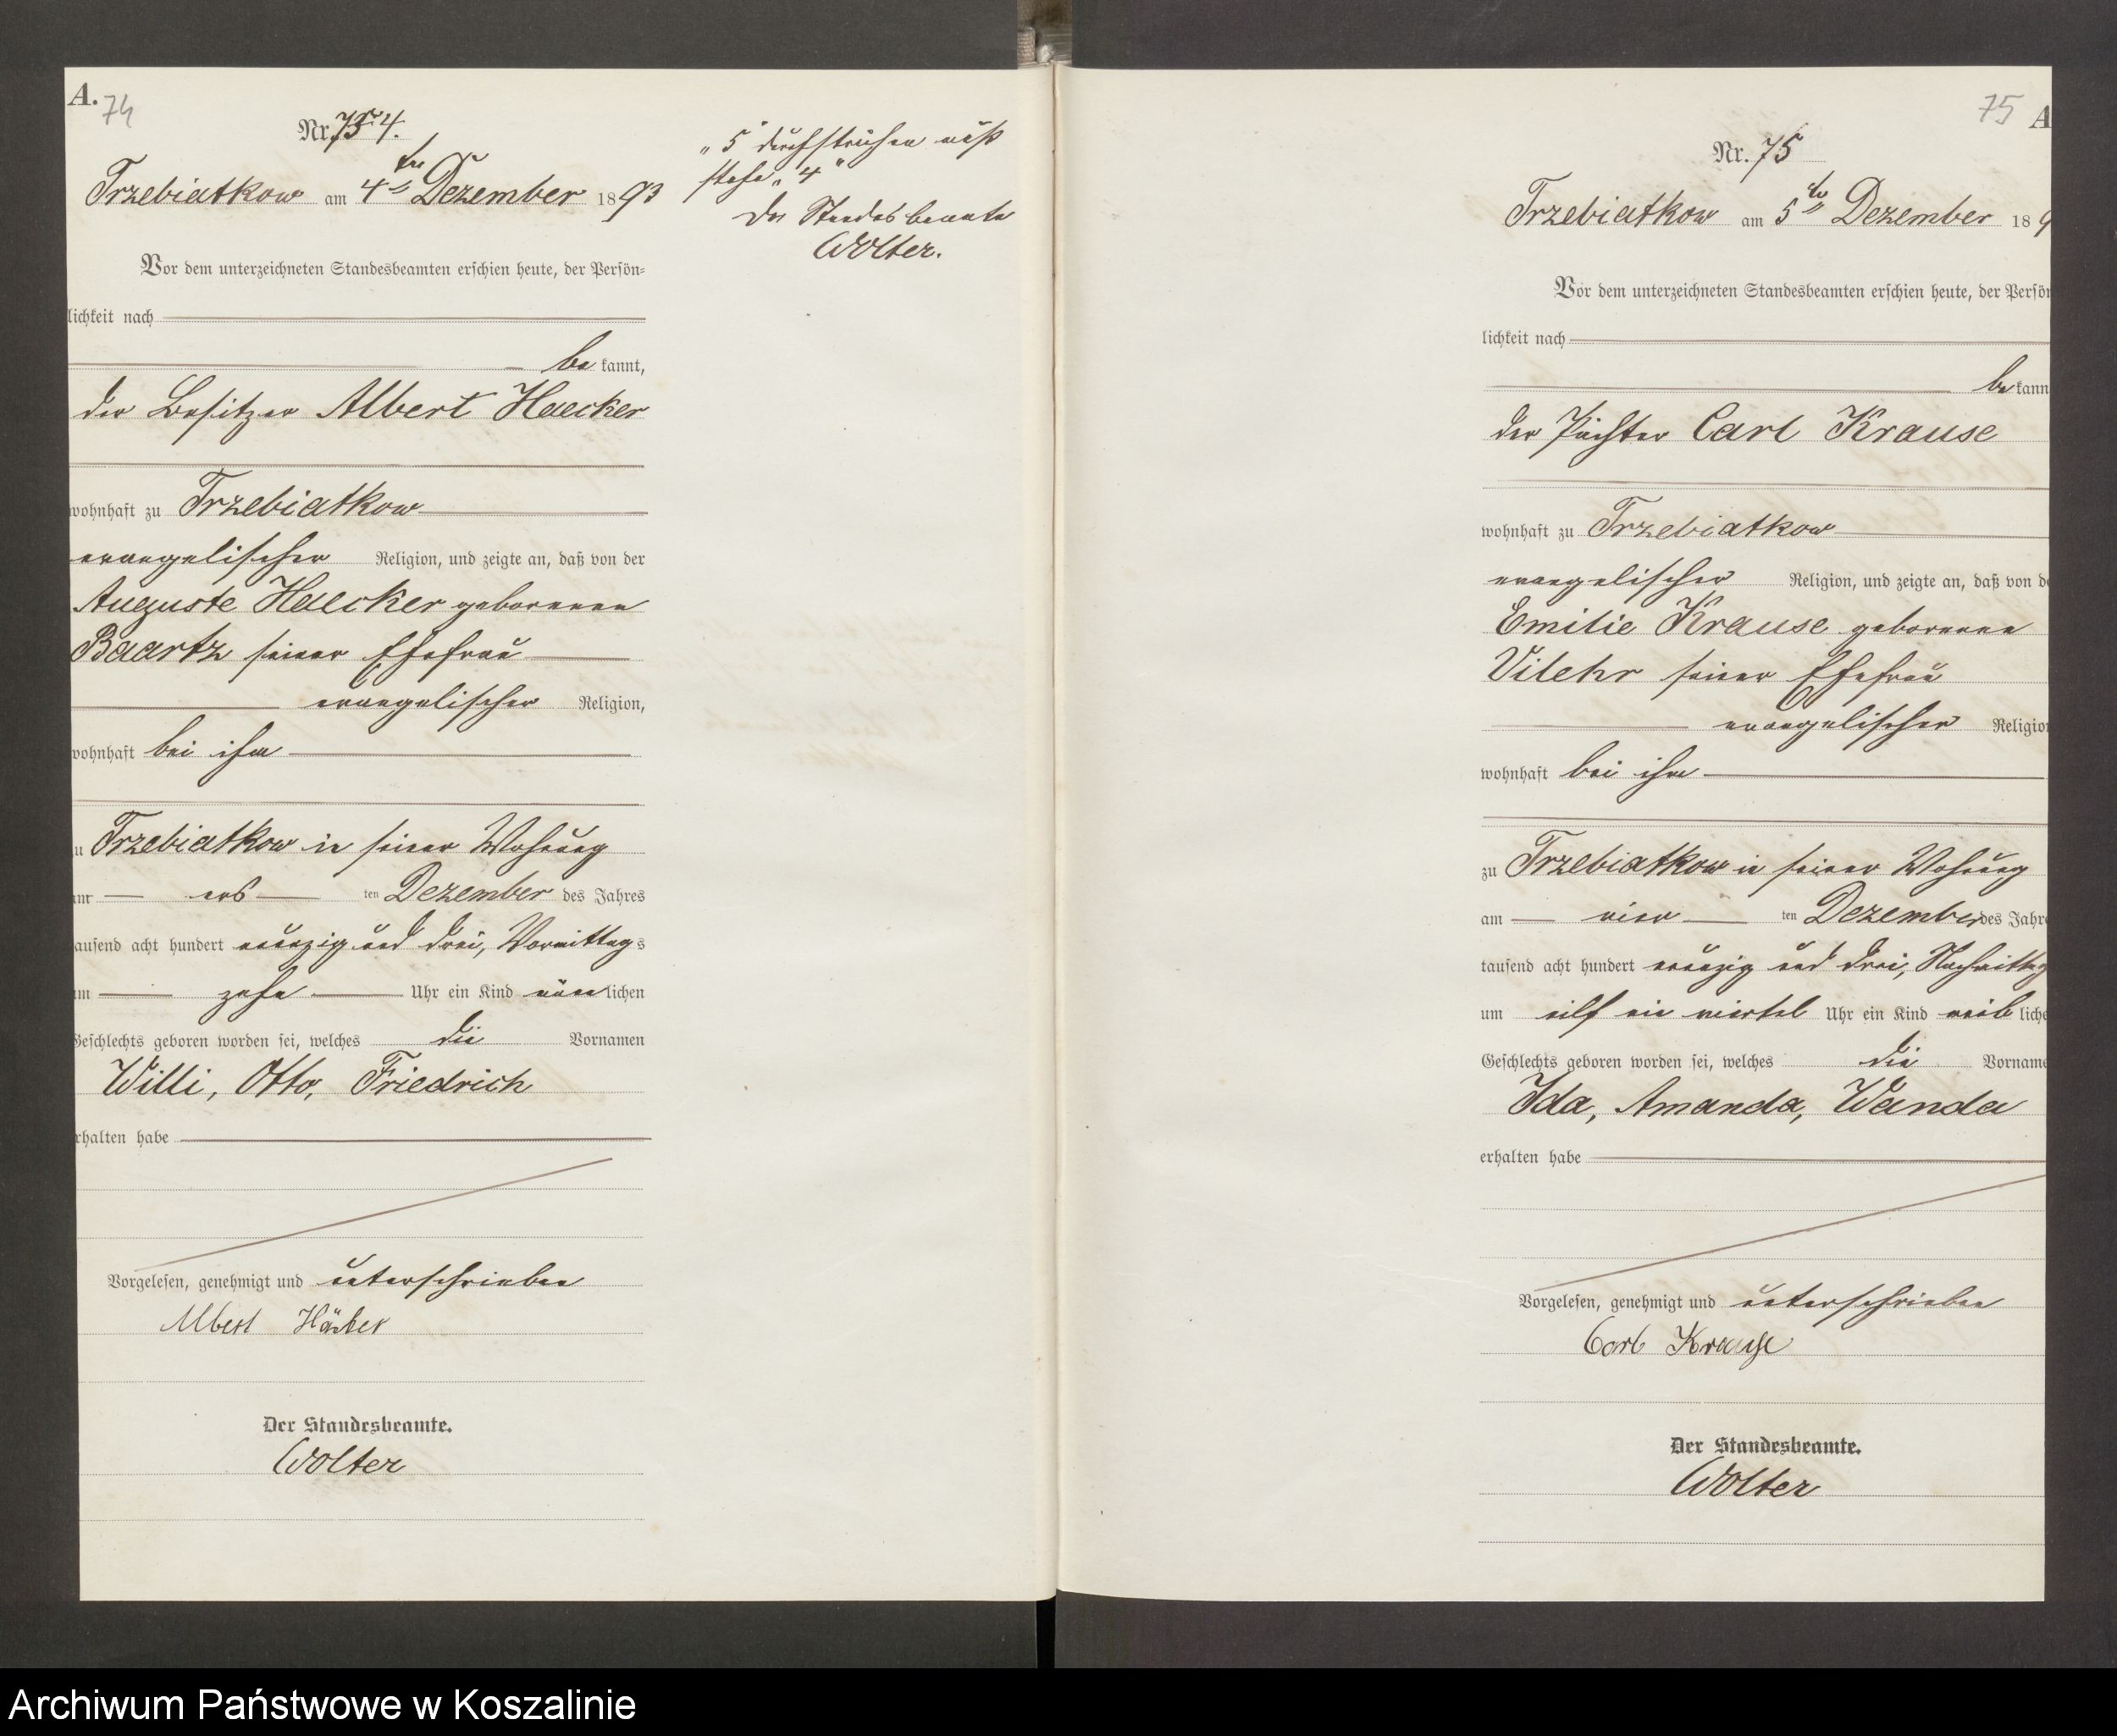 A.
74
Nr. 75 4.
Trzebiatkow am 4ten Dezember 1893
Vor dem unterzeichneten Standesbeamten erschien heute, der Persön-
lichkeit nach
be kannt,
der Besitzer Albert Haecker
wohnhaft zu Trzebiatkow
evangelischer Religion, und zeigte an, daß von der
Auguste Haecker geborenen
Baartz seiner Ehefrau
evangelischer Religion,
wohnhaft bei ihm
u Trzebiatkow in seiner Wohnung
am ers ten Dezember des Jahres
tausend acht hundert neunzig und drei, Vormittags
um zehn Uhr ein Kind männlichen
Geschlechts geboren worden sei, welches die Vornamen
Willi, Otto, Friedrich
erhalten habe
Vorgelesen, genehmigt und unterschrieben
Albert Häcker
Der Standesbeamte.
Wolter
„5" durchstrichen
„4"
Der Standesbeamte
Wolter.
75
A
Nr. 75
Trzebiatkow am 5ten Dezember 189
Vor dem unterzeichneten Standesbeamten erschien heute, der Persön
lichkeit nach
be kann
der Pächter Carl Krause
wohnhaft zu Trzebiatkow
evangelischer Religion, und zeigte an, daß von de
Emilie Krause geborenen
Vilehr seiner Ehefrau
evangelischer Religion
wohnhaft bei ihm
zu Trzebiatkow in seiner Wohnung
am vier ten Dezember des Jahre
tausend acht hundert neunzig und drei, Nachmittag
um eilf ein viertel Uhr ein Kind weib liche
Geschlechts geboren worden sei, welches die Vorname
Ida, Amanda, Wanda
erhalten habe
Vorgelesen, genehmigt und unterschrieben
Carl Krause
Der Standesbeamte.
Wolter
Archiwum Państwowe w Koszalinie